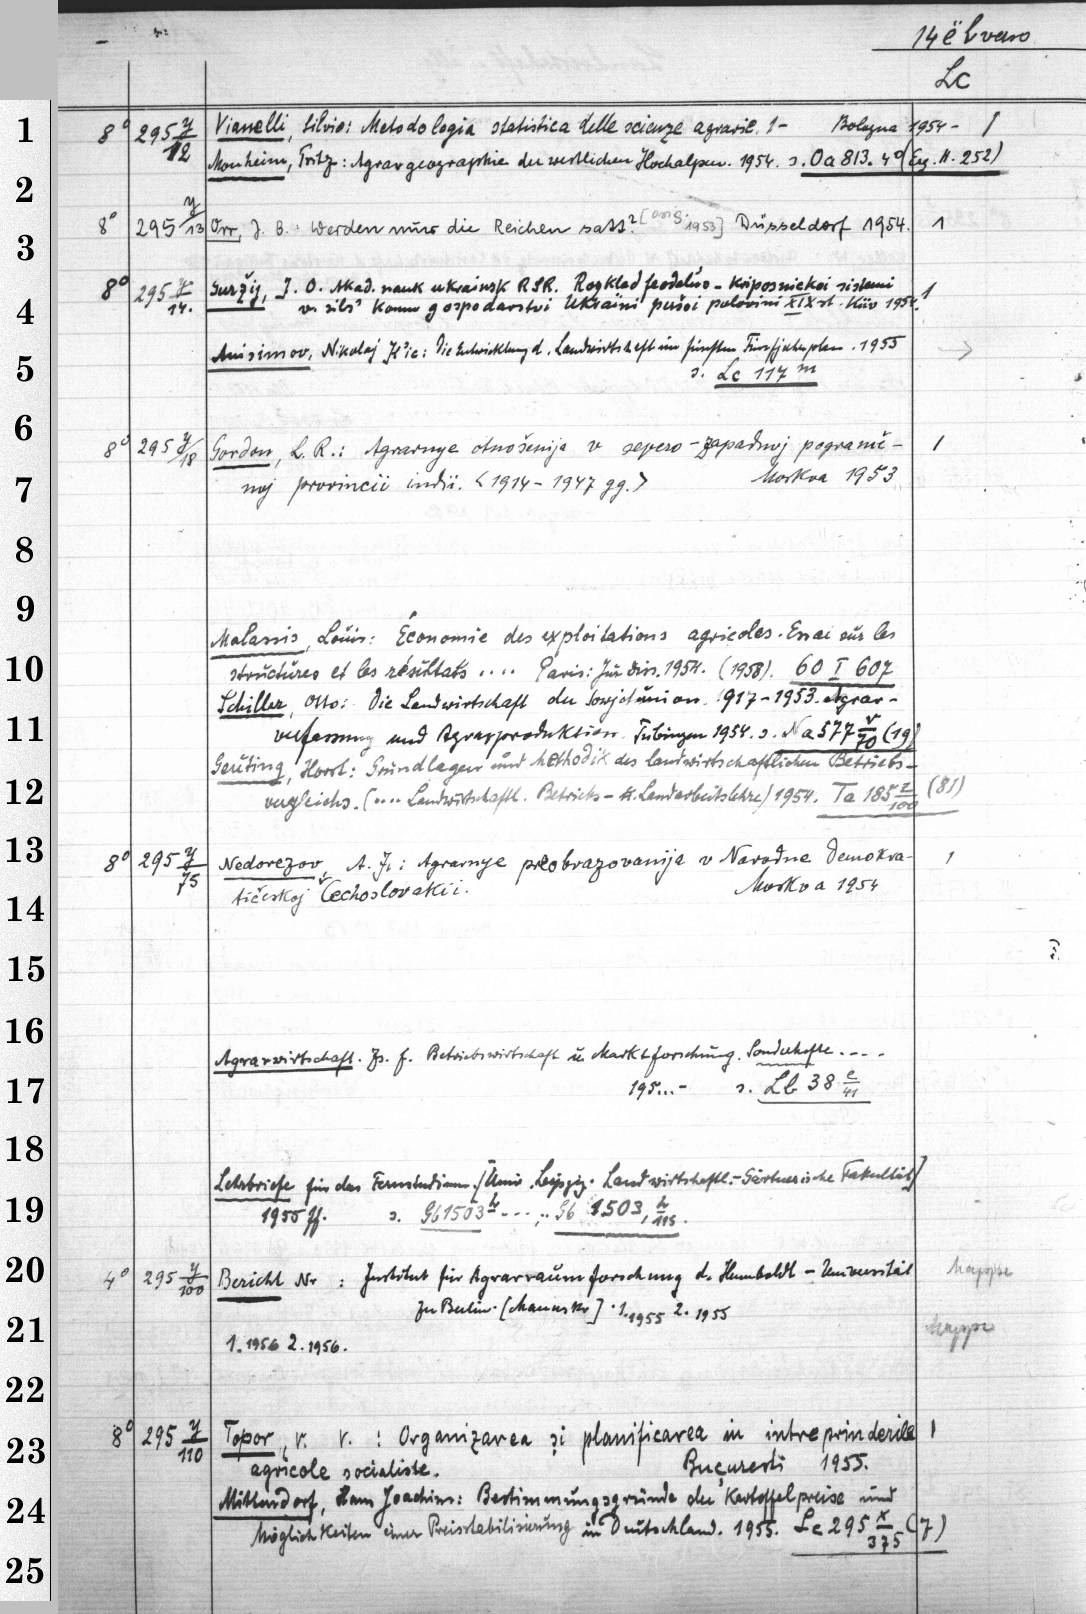 14 ë
Lc
1 8° 295 y/12 Vianelli, Silvio: Metodologia statistica delle scienze agrarie. 1- Bologna 1954- 1
Monheim, Fritz: Agrargeographie der westlichen Hochalpen. 1954. s. Oa 813. 4° (Erg. H. 252)
2
3 8° 295 y/13 Orr, J. B.: Werden nur die Reichen satt? [1953] Düsseldorf 1954. 1
4 8° 295 y/14. Guržij, I. O. Akad. nauk ukrainsk RSR. Rozklad feodal'no-kriposnickoi sistemi 1
v sils'komu gospodarstvi Ukraïni peršoi polovini XIX st. Kiiv 1954.
5 Anisimov, Nikolaj: Die Entwicklung d. Landwirtschaft im fünften Fünfjahrplan. 1955
s. Lc 117 m
6 8° 295 y/18 Gordon, L. R.: Agrarnye otnošenija v severo-zapadnoj pogranič- 1
7 noj provincii indii. <1914-1947 gg.> Moskva 1953
8
9
Malassis, Louis: Économie des exploitations agricoles. Essai sur les
10 structures et les résultats .... Paris: 1954. (1958). 60 I 607
Schiller, Otto: Die Landwirtschaft der Sowjetunion. 1917-1953. Agrar-
11 verfassung und Agrarproduktion. Tübingen 1954. s. Na 577 r/70 (19)
Geuting, Horst: Grundlagen und Methodik des landwirtschaftlichen Betriebs-
12 vergleichs. (.... Landwirtschaftl. Betriebs- u. Landarbeitslehre) 1954. Ta 185 z/100 (81)
13 8° 295 y/75 Nedorezov, A. I.: Agrarnye preobrazovanija v Narodno Demokra- 1
14 tičeskoj Čechoslovakii. Moskva 1954
15
16
Agrarwirtschaft. Zs. f. Betriebswirtschaft u. Marktforschung. Sonderhefte ....
17 195...- s. Lb 38 e/41
18
Lehrbriefe für das Fernstudium. [Univ. Leipzig. Landwirtschaftl.-Gärtnerische Fakultät]
19 1955 ff. s. Gb 1503 h .... Gb 1503, h/115.
20 4° 295 y/100 Bericht Nr : Institut für Agrarraumforschung d. Humboldt-Universität Mappe
zu Berlin. [Manuskr] 1. 1955 2. 1955
21 1. 1956 2. 1956. Mappe
22
23 8° 295 y/110 Topor, V. V.: Organizarea și planificarea in intreprinderile 1
agricole socialiste. București 1955.
24 Mittendorf, Hans Joachim: Bestimmungsgründe der Kartoffelpreise und
Möglichkeiten einer Preisstabilisierung in Deutschland. 1955. Lc 295 x/375 (7)
25